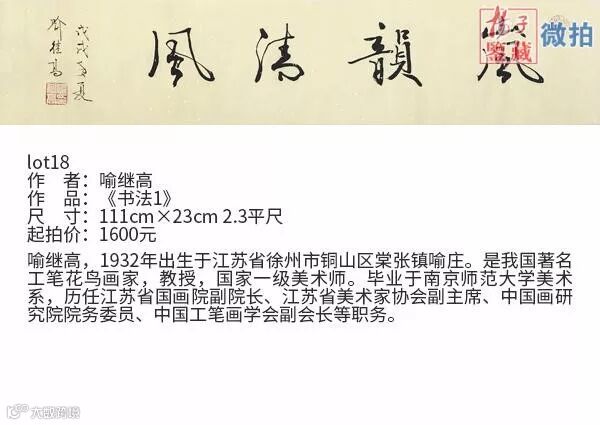 韻清風
戊戌年夏
喻继高
子
鉴藏
微拍
lot18
作 者：喻继高
作 品：《书法1》
尺 寸：111cm×23cm 2.3平尺
起拍价：1600元
喻继高，1932年出生于江苏省徐州市铜山区棠张镇喻庄。是我国著名
工笔花鸟画家，教授，国家一级美术师。毕业于南京师范大学美术
系，历任江苏省国画院副院长、江苏省美术家协会副主席、中国画研
究院院务委员、中国工笔画学会副会长等职务。